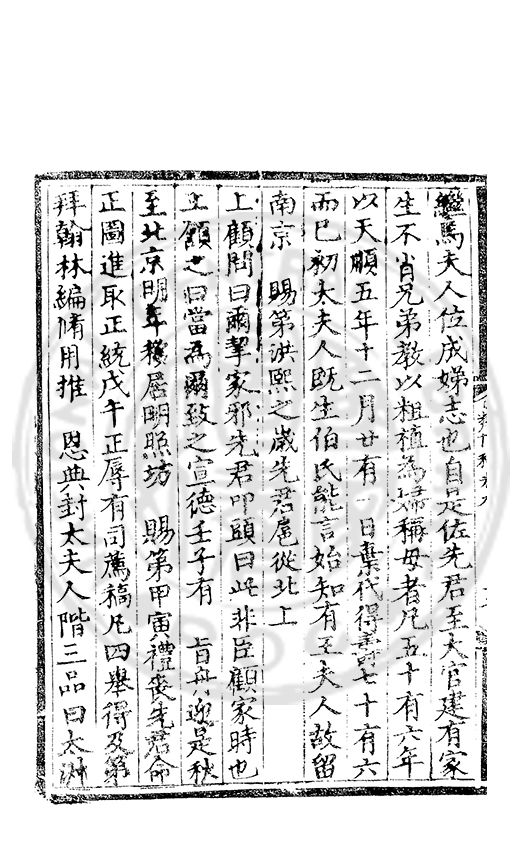 繼馬夫人位成娣志也自是佐先君至大官建有家
生不肖兄弟教以粗植為婦稱母者凡五十有六年
以天順五年十二月廿有一日棄代得壽七十有六
而已初太夫人既生伯氏能言始知有王夫人故留
南京　賜第洪熙之歲先君扈從北上
上顧問曰爾挈家邪先君叩頭曰此非臣顧家時也
上顧之曰當為爾致之宣德壬子有　旨舟迎是秋
至北京明年移居明照坊　賜第甲寅禮喪先君命
正圖進取正統戊午正辱有司薦稿凡四舉得及第
拜翰林編脩用推　恩典封太夫人階三品曰太淑